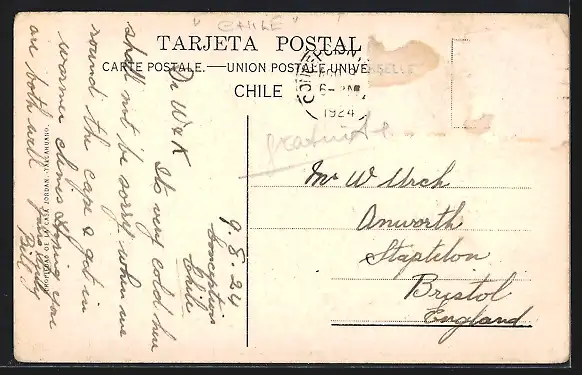 "CHILE"
TARJETA POSTAL
CARTE POSTALE.—UNION POSTALE UNIVERSELLE
CHILE
1924
gratuite
9. 8. 24
Concepcion
Chile
Dr W & K
Its very cold here
shall not be sorry when we
round the cape & get in
warmer climes Hoping you
are both well
Bill
Mr W Urch
Anworth
Stapleton
Bristol
England